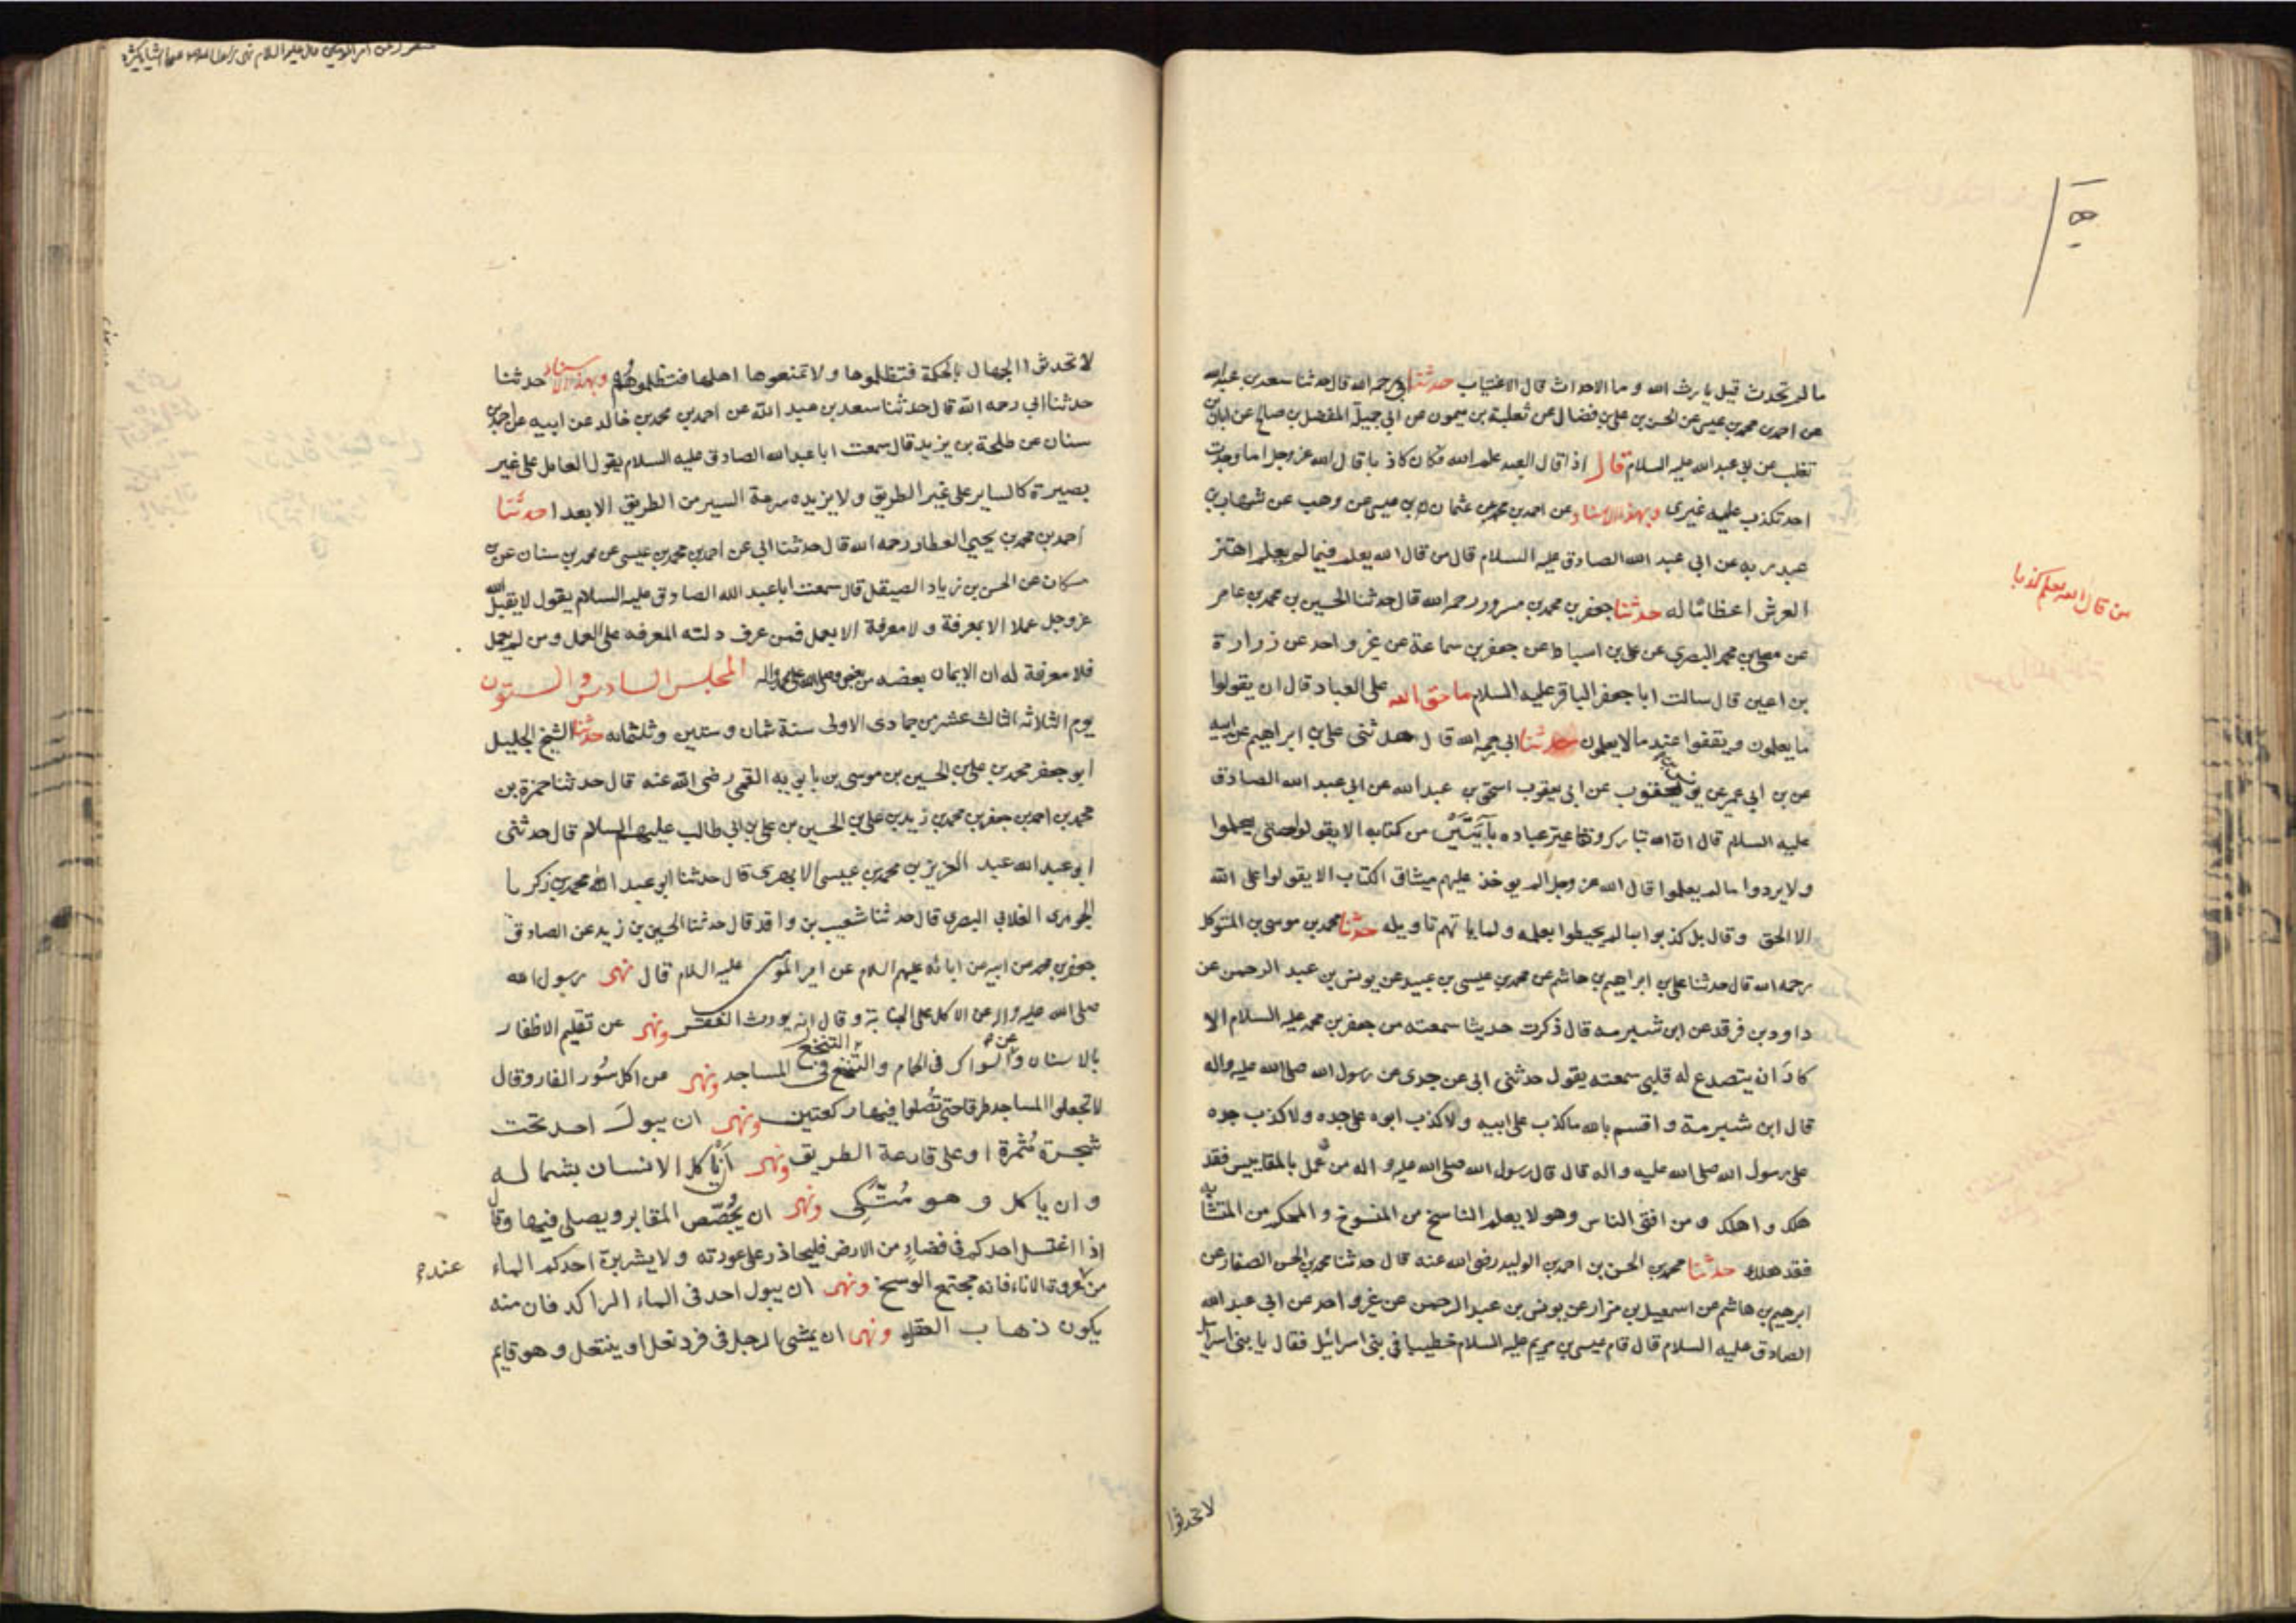 ما لم تحدث قيل يا رسول الله وما الاحداث قال الاغتياب حدثنا ابي رحمه الله قال حدثنا سعد بن عبد الله
عن احمد بن محمد بن عيسى عن الحسن بن علي بن فضال عن ثعلبة بن ميمون عن ابي جميلة المفضل بن صالح عن ابان بن
تغلب عن ابي عبد الله عليه السلام قال اذا قال العبد علم الله فكان كاذبا قال الله عز وجل اما وجدت
احد تكذب عليه غيري وبهذا الاسناد عن احمد بن محمد عن عثمان بن عيسى عن وهب عن شهاب بن
عبد ربه عن ابي عبد الله الصادق عليه السلام قال من قال الله يعلم فيما لم يعلم اهتز
العرش اعظاما له حدثنا جعفر بن محمد بن مسرور رحمه الله قال حدثنا الحسين بن محمد بن عامر
من قال الله يعلم كذبا
عن معلى بن محمد البصري عن علي بن اسباط عن جعفر بن سماعة عن غير واحد عن زرارة
بن اعين قال سالت ابا جعفر الباقر عليه السلام ما حق الله على العباد قال ان يقولوا
ما يعلمون ويقفوا عند ما لا يعلمون حدثنا ابي رحمه الله قال حدثنى علي بن ابراهيم عن ابيه
عن بن ابي عمير عن يونس بن يعقوب عن ابي يعقوب اسحق بن عبد الله عن ابي عبد الله الصادق
عليه السلام قال ان الله تبارك وتعا عير عباده بآيتين من كتابه الا يقولوا حتى يعلموا
ولا يردوا ما لم يعلموا قال الله عز وجل الم يوخذ عليهم ميثاق الكتاب الا يقولوا على الله
الا الحق وقال بل كذبوا بما لم يحيطوا بعلمه ولما ياتهم تاويله حدثنا محمد بن موسى بن المتوكل
رحمه الله قال حدثنا علي بن ابراهيم بن هاشم عن محمد بن عيسى بن عبيد عن يونس بن عبد الرحمن عن
داود بن فرقد عن ابن شبرمه قال ذكرت حديثا سمعته من جعفر بن محمد عليه السلام الا
كاد ان يتصدع له قلبي سمعته يقول حدثنى ابي عن جدى عن رسول الله صلى الله عليه واله
قال ابن شبرمة واقسم بالله ما كذب على ابيه ولا كذب ابوه على جده ولا كذب جده
على رسول الله صلى الله عليه واله قال قال رسول الله صلى الله عليه واله من عمل بالمقاييس فقد
هلك واهلك ومن افتى الناس وهو لا يعلم الناسخ من المنسوخ والمحكم من المتشابه
فقد هلك حدثنا محمد بن الحسن بن احمد بن الوليد رضى الله عنه قال حدثنا محمد بن الحسن الصفار عن
ابرهيم بن هاشم عن اسمعيل بن مرار عن يونس بن عبد الرحمن عن غير واحد عن ابي عبد الله
الصادق عليه السلام قال قام عيسى بن مريم عليه السلام خطيبا في بنى اسرائيل فقال يا بنى اسرائيل
لا تحدثوا
لا تحدثوا الجهال بالحكمة فتظلموها ولا تمنعوها اهلها فتظلموهم وبهذا الاسناد حدثنا
حدثنا ابي رحمه الله قال حدثنا سعد بن عبد الله عن احمد بن محمد بن خالد عن ابيه عن محمد بن
سنان عن طلحة بن يزيد قال سمعت ابا عبد الله الصادق عليه السلام يقول العامل على غير
بصيرة كالساير على غير الطريق ولا يزيده سرعة السير من الطريق الا بعدا حدثنا
احمد بن محمد بن يحيي العطار رحمه الله قال حدثنا ابي عن احمد بن محمد بن عيسى عن محمد بن سنان عن بن
مسكان عن الحسن بن زياد الصيقل قال سمعت ابا عبد الله الصادق عليه السلام يقول لا يقبل الله
عز وجل عملا الا بمعرفة ولا معرفة الا بعمل فمن عرف دلته المعرفه على العمل ومن لم يعمل
فلا معرفة له ان الايمان بعضه من بعض وصلى الله على محمد واله المجلس السادس والستون
يوم الثلاثه الثالث عشر من جمادى الاولى سنة ثمان وستين وثلثمائه حدثنا الشيخ الجليل
ابو جعفر محمد بن علي بن الحسين بن موسى بن بابويه القمي رضى الله عنه قال حدثنا حمزة بن
محمد بن احمد بن جعفر بن محمد بن زيد بن علي بن الحسين بن علي بن ابي طالب عليهم السلام قال حدثنى
ابو عبد الله عبد العزيز بن محمد بن عيسى الابهري قال حدثنا ابو عبد الله محمد بن زكريا
الجوهرى الغلابي البصرى قال حدثنا شعيب بن واقد قال حدثنا الحسين بن زيد عن الصادق
جعفر بن محمد عن ابيه عن ابائه عليهم السلام عن امير المومنين عليه السلام قال نهى رسول الله
صلى الله عليه واله عن الاكل على الجنابة وقال انه يورث الفقر ونهى عن تقليم الاظفار
بالاسنان وعن السواك في الحمام والتنخع في المساجد ونهى عن اكل سور الفار وقال
لا تجعلوا المساجد طرقا حتى تصلوا فيها ركعتين ونهى ان يبول احد تحت
شجرة مثمرة او على قارعة الطريق ونهى ان ياكل الانسان بشماله
وان ياكل وهو متكي ونهى ان يجصص المقابر ويصلى فيها وقال
اذا اغتسل احدكم في فضاء من الارض فليحاذر على عورته ولا يشربن احدكم الماء عند
من عروة الاناء فانه مجتمع الوسخ ونهى ان يبول احد في الماء الراكد فان منه
يكون ذهاب العقل ونهى ان يمشى الرجل في فرد نعل او ينتعل وهو قايم